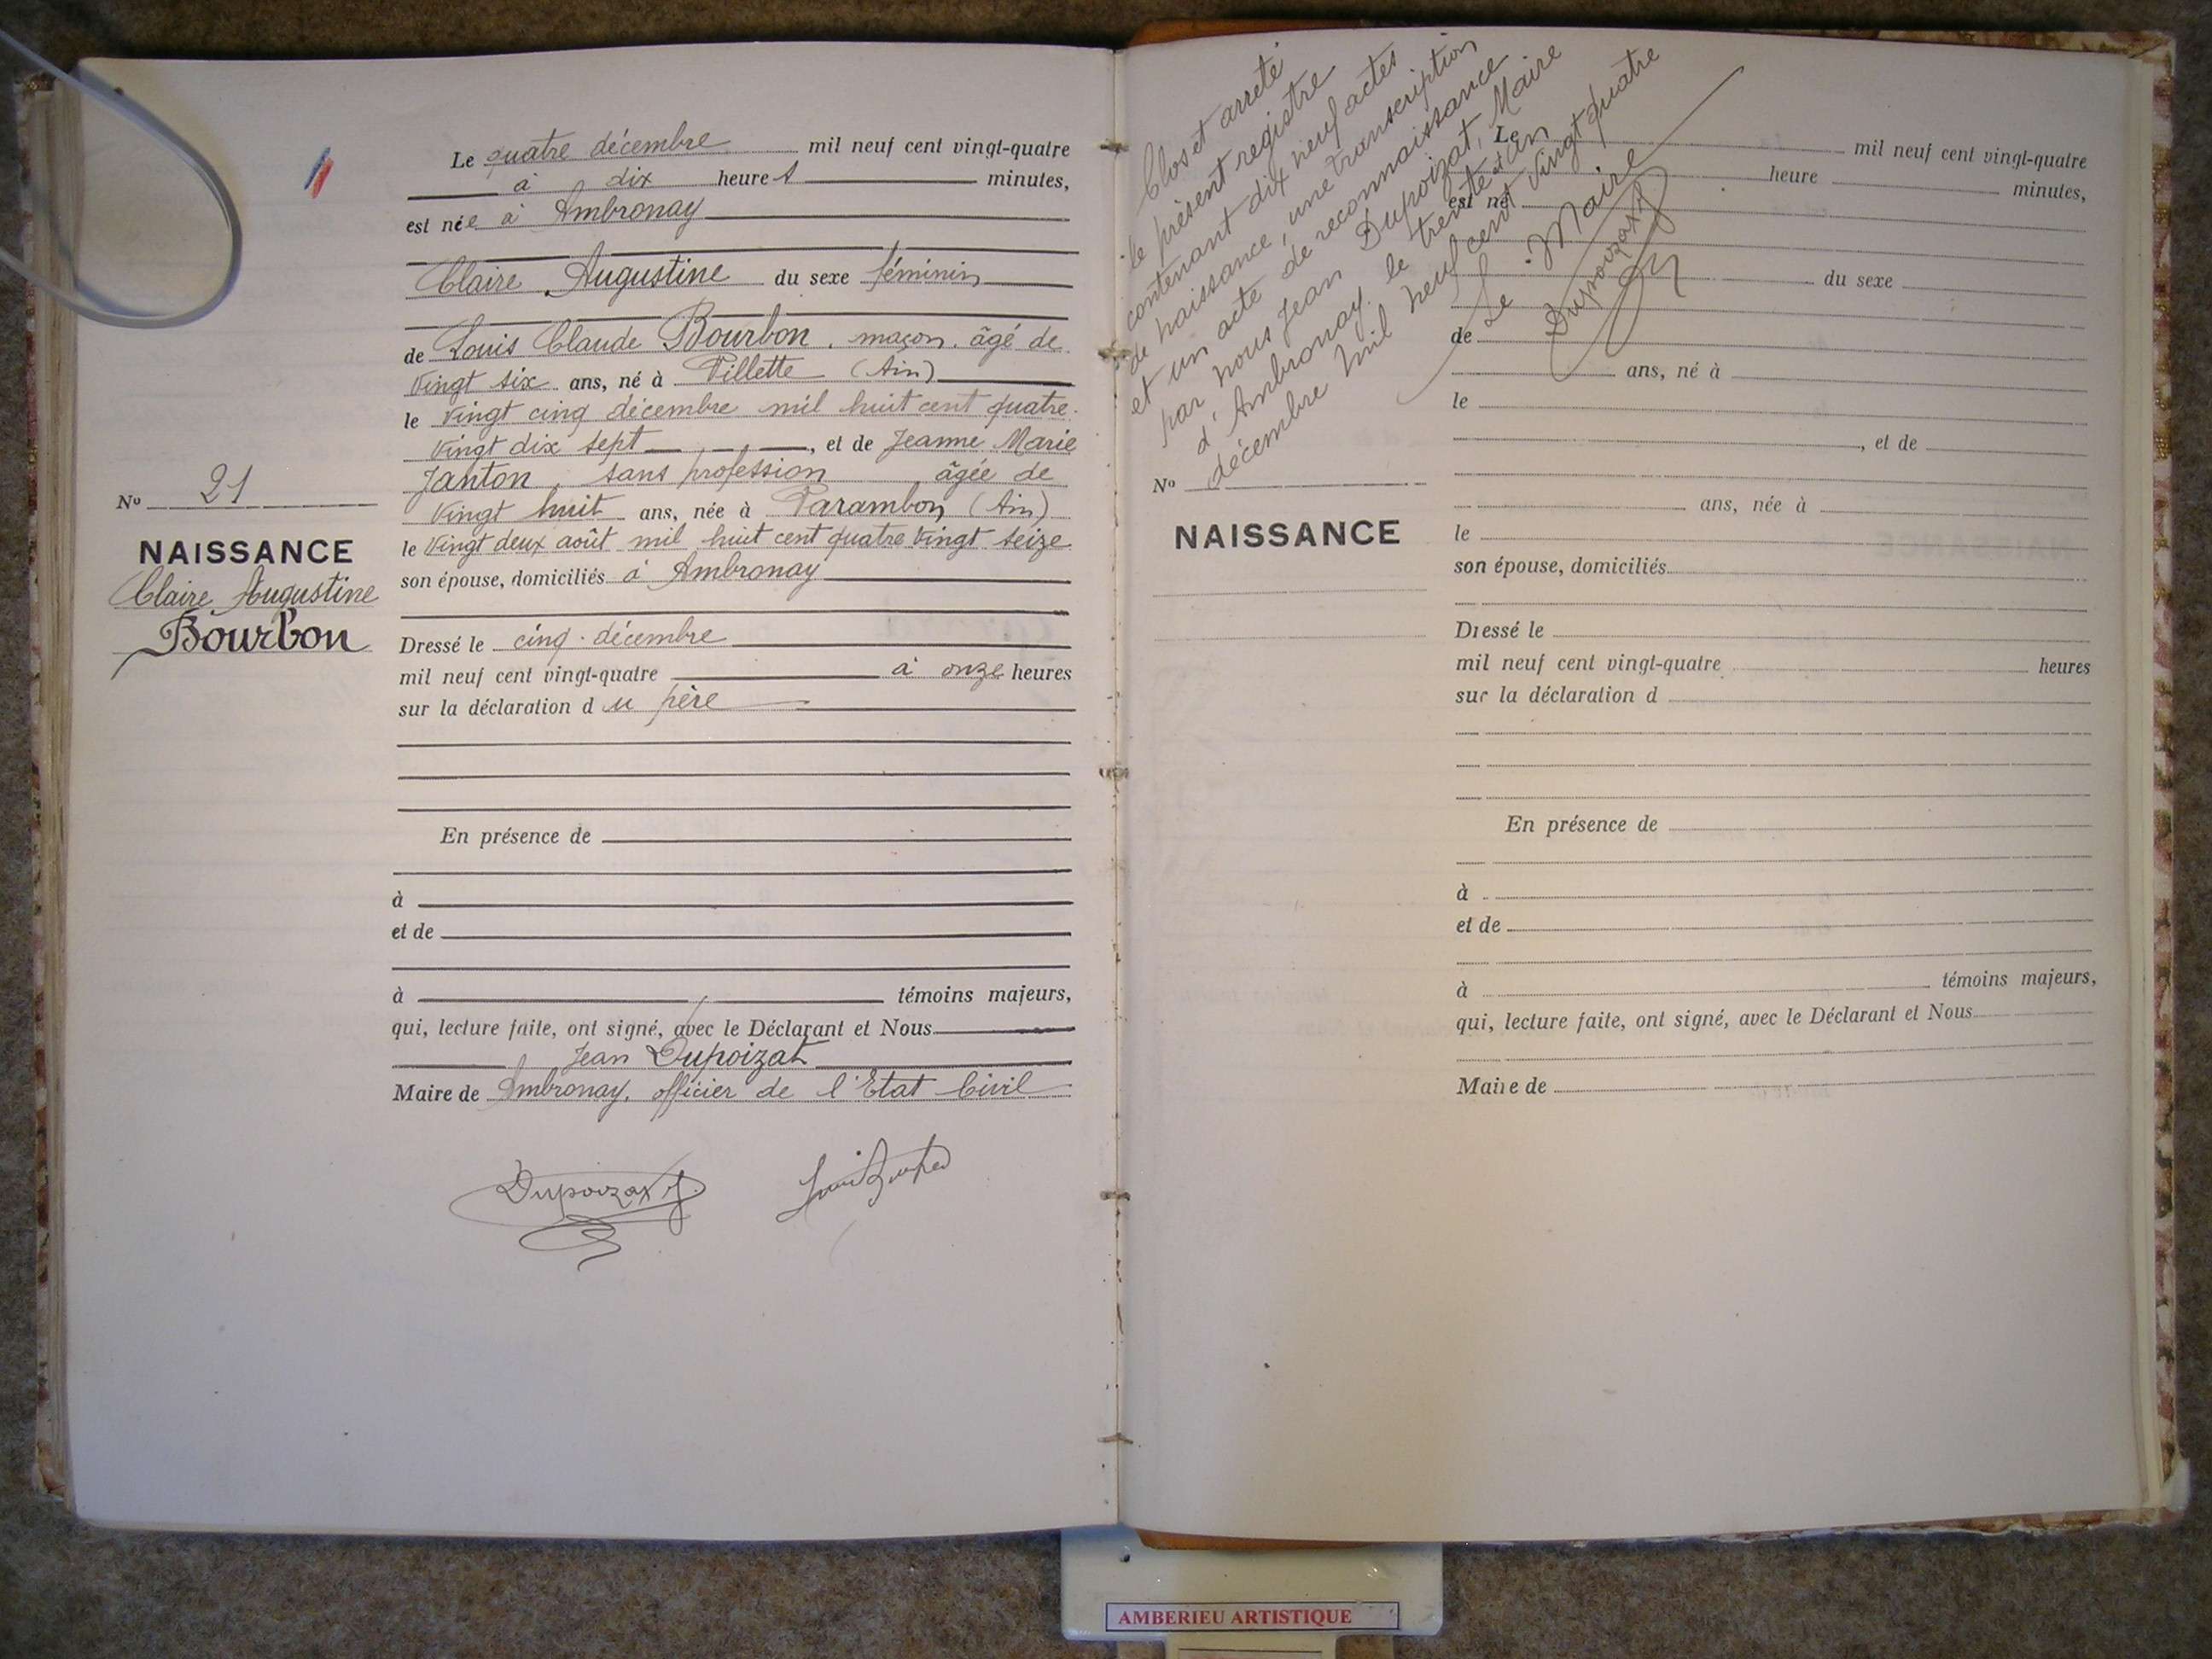 Le quatre décembre mil neuf cent vingt-quatre
à dix heures minutes,
est née à Ambronay
Claire Augustine du sexe féminin
de Louis Claude Bourbon, maçon, âgé de
vingt six ans, né à Villette (Ain)
le vingt cinq décembre mil huit cent quatre
vingt dix sept, et de Jeanne Marie
Janton, sans profession âgée de
vingt huit ans, née à Varambon (Ain)
le vingt deux août mil huit cent quatre vingt seize
son épouse, domiciliés à Ambronay
No 21
NAISSANCE
Claire Augustine
Bourbon
Dressé le cinq décembre
mil neuf cent vingt-quatre à onze heures
sur la déclaration du père
En présence de
à
et de
à témoins majeurs,
qui, lecture faite, ont signé, avec le Déclarant et Nous
Jean Dupoizat
Maire de Ambronay, officier de l'Etat Civil
Dupoizat J.
Clos et arrêté
le présent registre
contenant dix neuf actes
de naissance, une transcription
et un acte de reconnaissance
par nous Jean Dupoizat, Maire
d'Ambronay le trente et un
décembre mil neuf cent vingt quatre
Le Maire
Dupoizat J
Le mil neuf cent vingt-quatre
heure minutes,
est né
du sexe
de
ans, né à
le
, et de
No
ans, née à
NAISSANCE
le
son épouse, domiciliés
Dressé le
mil neuf cent vingt-quatre heures
sur la déclaration d
En présence de
à
et de
à témoins majeurs,
qui, lecture faite, ont signé, avec le Déclarant et Nous
Maire de
AMBERIEU ARTISTIQUE